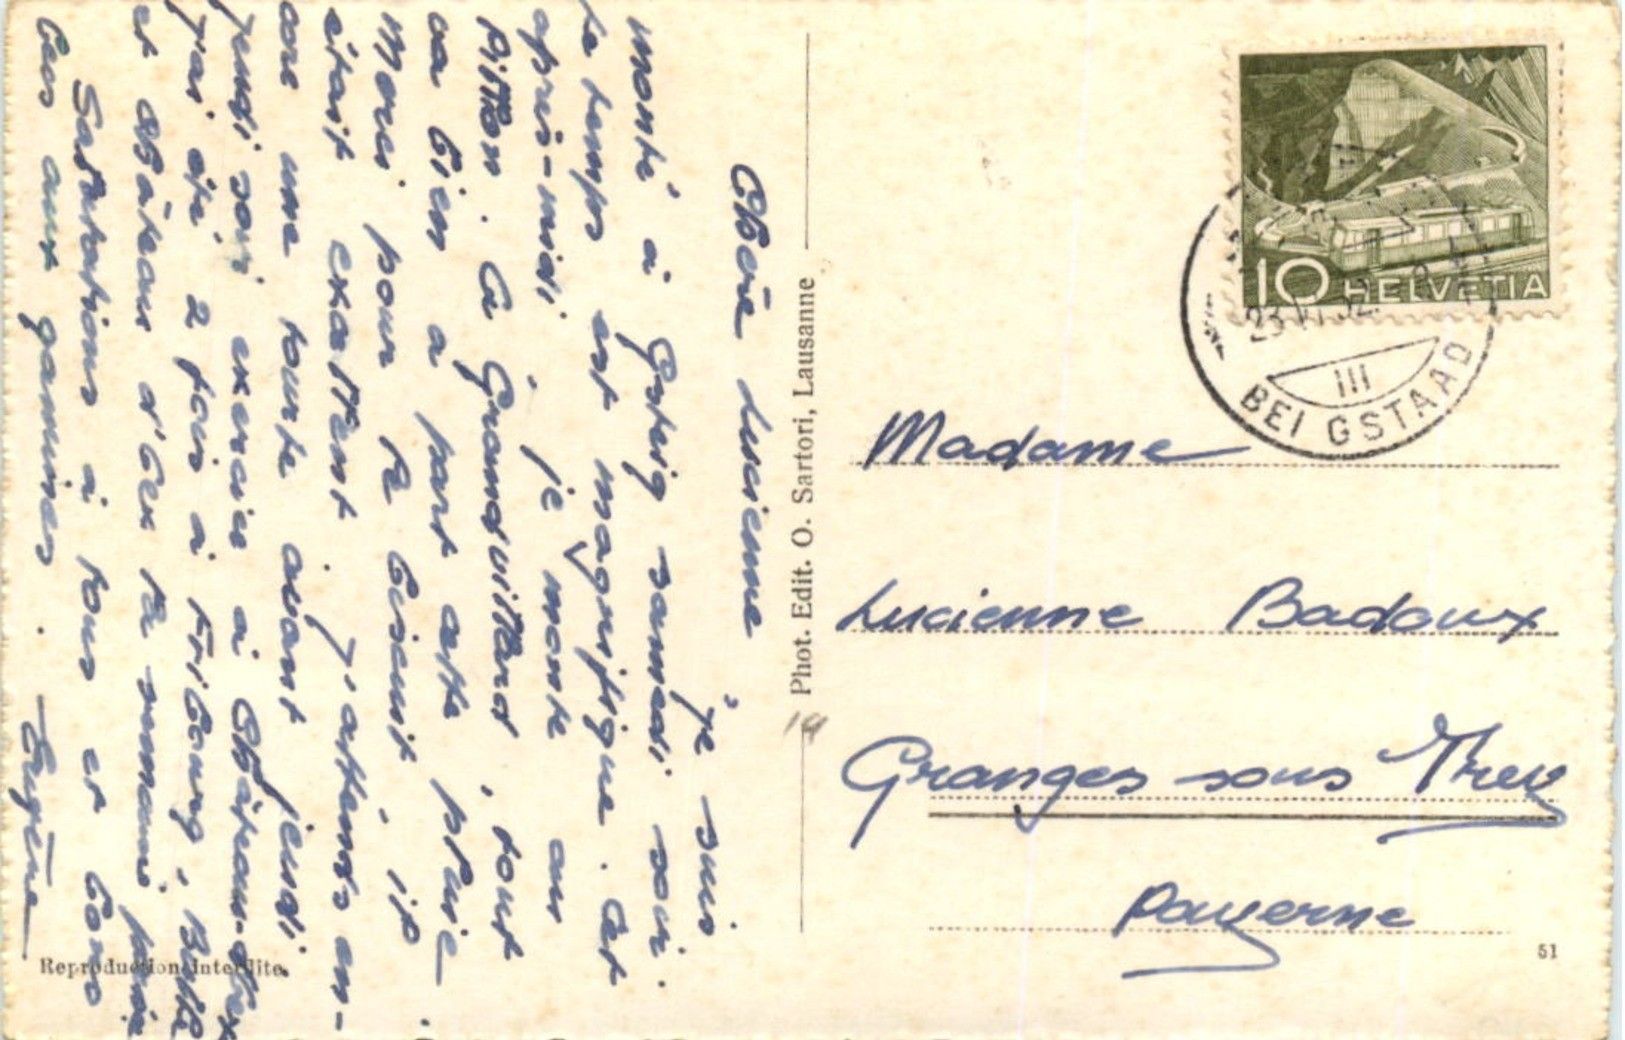 Chère Lucienne
je suis
monté à Gsteig samedi soir.
Le temps est magnifique. Cet
après-midi, je monte au
Pillon. A Grandvillard, tout
va bien à part cette pluie.
Merci pour le biscuit, il
était excellent. J'attends en-
core une tourte avant jeudi.
Jeudi soir exercice à Château-d'Oex
J'ai été 2 fois à Fribourg, Bulle
et Château d'Oex la semaine passée
Salutations à tous et bons
becs aux gamines. Eugène
Phot. Edit. O. Sartori, Lausanne
Reproduction interdite.
10 HELVETIA
23 VI 52
BEI GSTAAD
III
Madame
Lucienne Badoux
Granges sous Trey
Payerne
51
19